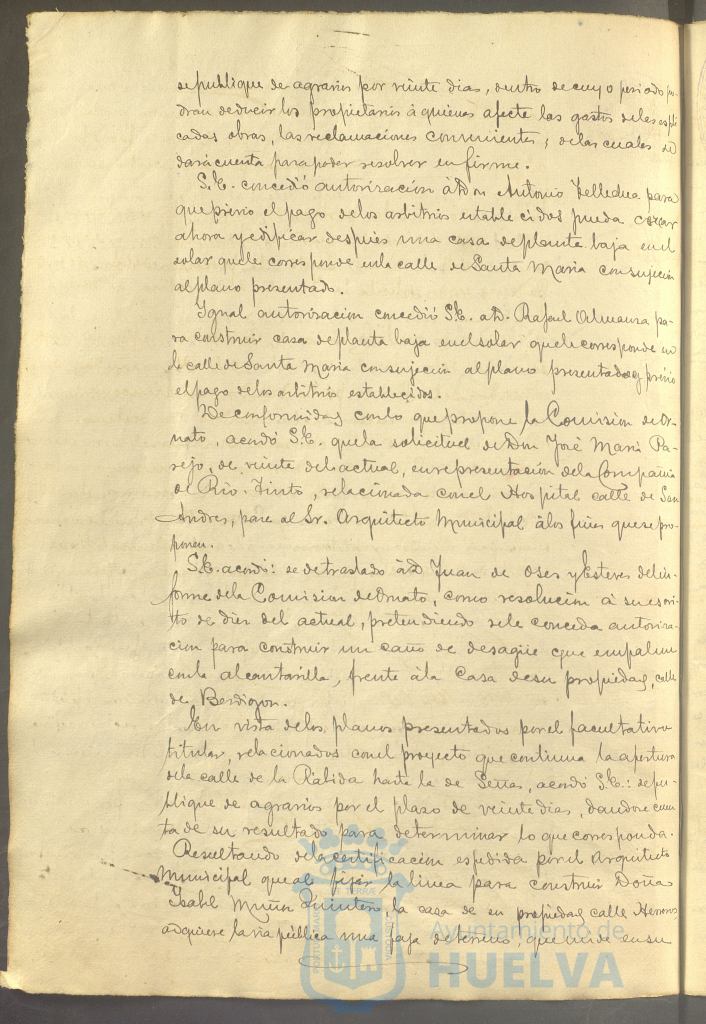 se publique de agravios por veinte dias, dentro de cuyo periodo po-
dran deducir los propietarios á quienes afecte los gastos de las espli-
cadas obras, las reclamaciones convenientes; de las cuales se
dará cuenta para poder resolver en firme.
S.E. concedió autorizacion á Don Antonio para
que previo el pago de los arbitrios establecidos pueda
ahora y edificar después una casa de planta baja en el
solar que le corresponde en la calle de Santa Maria con sujecion
al plano presentado.
Igual autorizacion concedió S.E. a D. Rafael Almanza pa-
ra construir casa de planta baja en el solar que le corresponde en
la calle de Santa Maria con sujecion al plano presentado y previo
el pago de los arbitrios establecidos.
De conformidad con lo que propone la Comision de Or-
nato, acordó S.E. que la solicitud de Don José Maria Pa-
rejo, de veinte del actual, en representación de la Compañia
de Rio-Tinto, relacionada con el Hospital calle de San
Andres, pase al Sr. Arquitecto Municipal á los fines que se pro-
ponen.
S.E. acordó: se de traslado á D. Juan de Oses y Esteves del in-
forme de la Comision de Ornato, como resolucion á su escri-
to de diez del actual, pretendiendo se le conceda autoriza-
cion para construir un caño de desagüe que empalme
con la alcantarilla, frente á la Casa de su propiedad, calle
de Berdigon.
En vista de los planos presentados por el facultativo
titular, relacionados con el proyecto que continua la apertura
de la calle de la Rábida hasta la de acordó S.E.: se pu-
blique de agravios por el plazo de veinte dias, dandose cuen-
ta de su resultado para determinar lo que corresponda.
Resultando de la certificacion espedida por el Arquitecto
Municipal que al fijar la linea para construir Doña
Isabel Muñoz Quintero, la casa de su propiedad calle Herreros
adquiere la via pública una faja de terreno, que mide en su
Ayuntamiento de
HUELVA